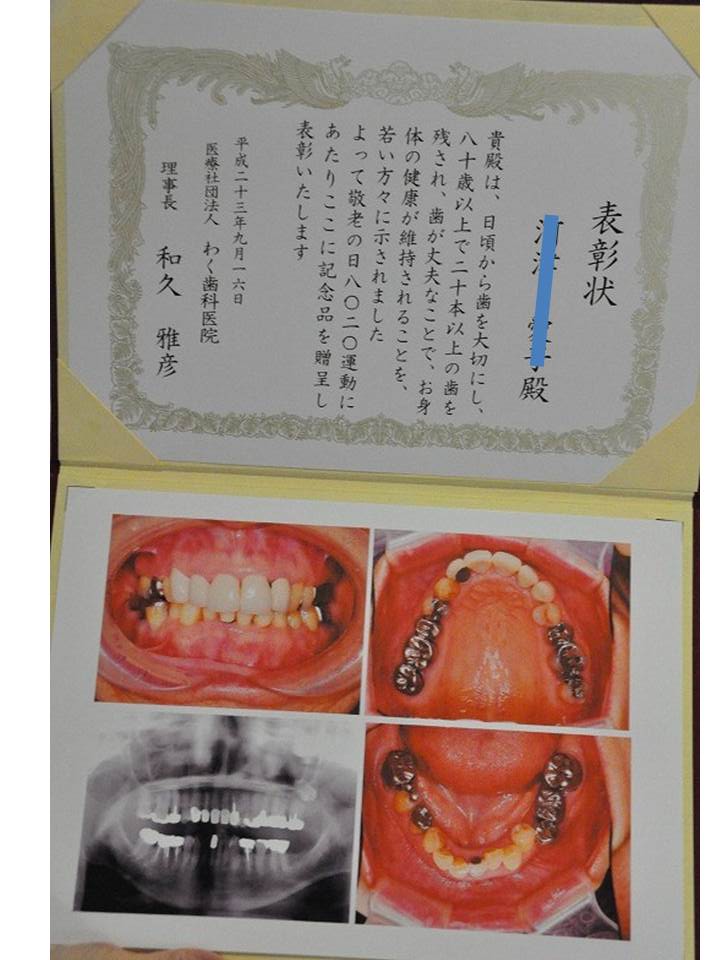 表彰状
殿
貴殿は、日頃から歯を大切にし、
八十歳以上で二十本以上の歯を
残され、歯が丈夫なことで、お身
体の健康が維持されることを、
若い方々に示されました
よって敬老の日八〇二〇運動に
あたりここに記念品を贈呈し
表彰いたします
平成二十三年九月一六日
医療社団法人 わく歯科医院
理事長 和久 雅彦